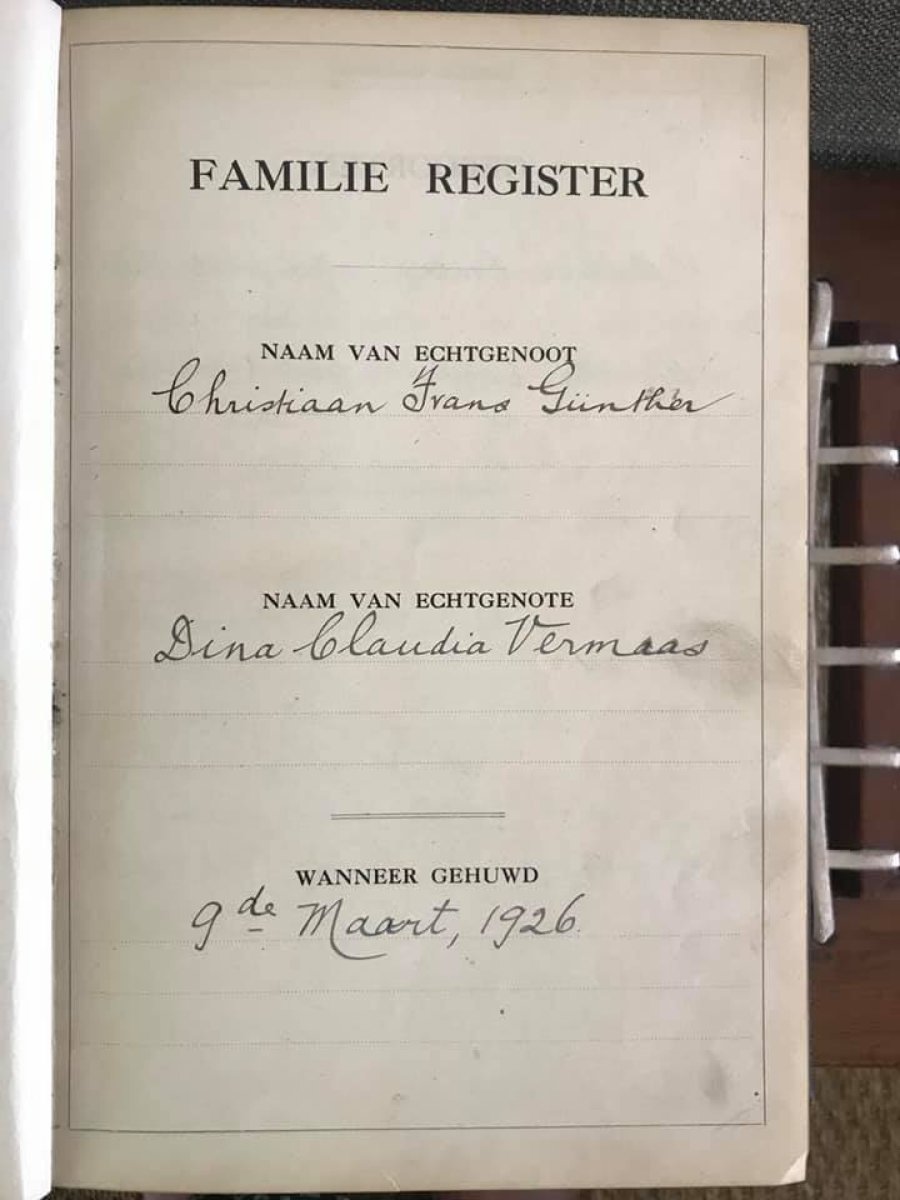 FAMILIE REGISTER
NAAM VAN ECHTGENOOT
Christiaan Frans Günther
NAAM VAN ECHTGENOTE
Dina Claudia Vermaas
WANNEER GEHUWD
9de Maart, 1926.